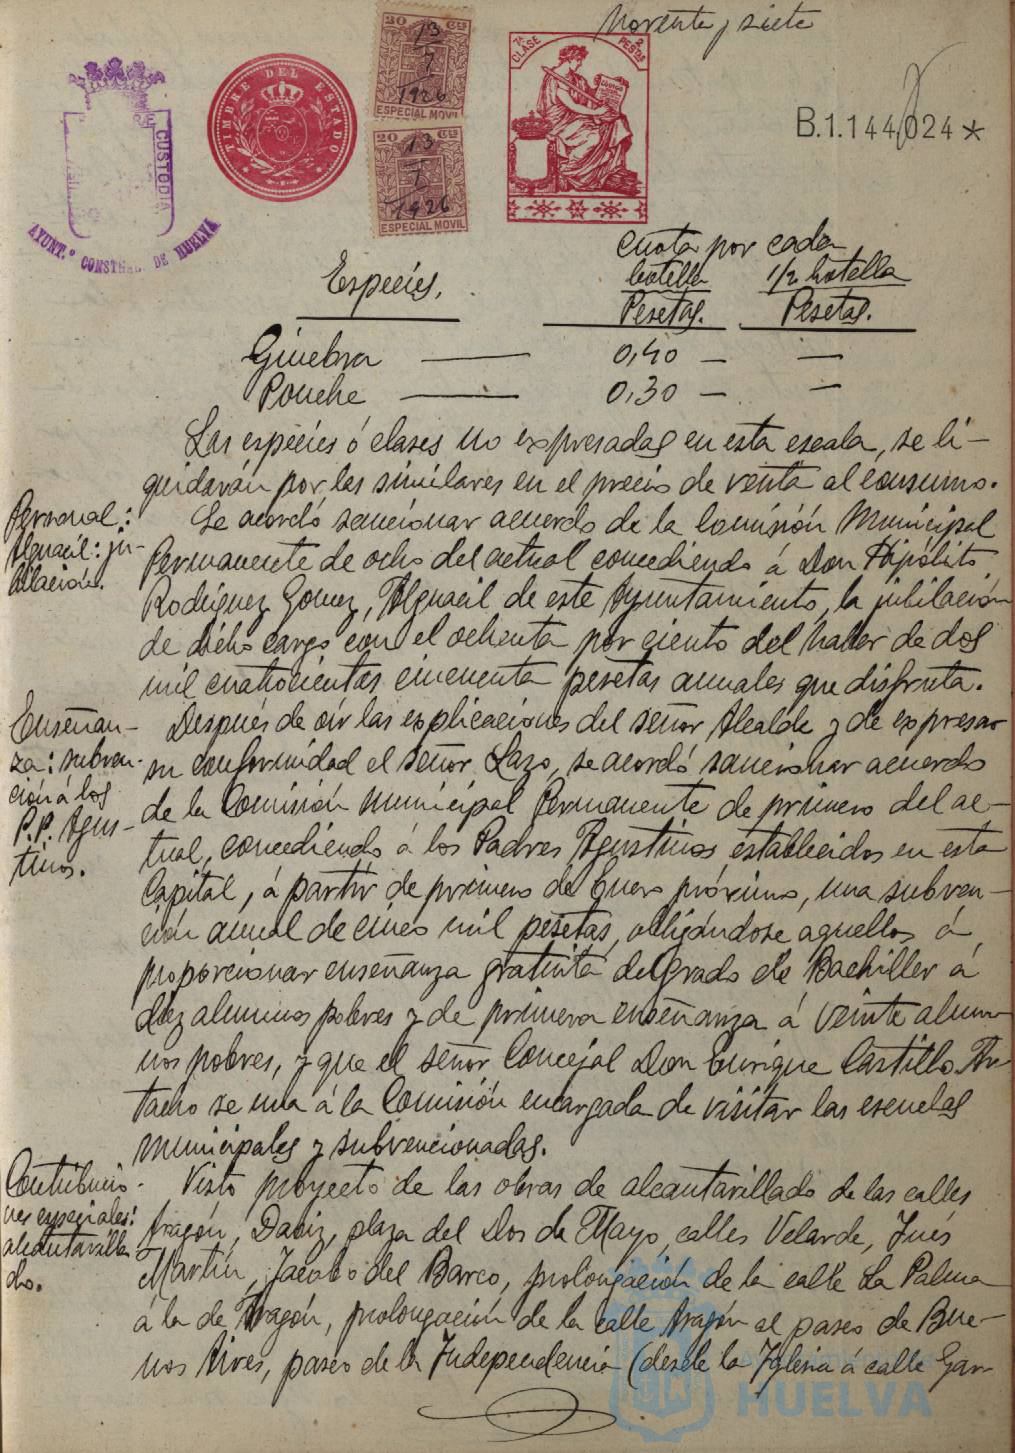 Noventa y siete
CUSTODIA
AYUNT.º CONSTNAL. DE HUELVA
TIMBRE DEL ESTADO
20 Cts
13
7
1926
ESPECIAL MOVIL
20 Cts
13
7
1926
ESPECIAL MOVIL
7ª CLASE
2 PESTAS
B.1.144,024*
Especies.
Cuota por cada
botella 1/2 botella
Pesetas. Pesetas.
Ginebra — 0,40 — —
Ponche — 0,30 — —
Las especies ó clases no expresadas en esta escala, se li-
quidarán por las similares en el precio de venta al consumo.
Personal:
Alguacil: ju-
bilación.
Se acordó sancionar acuerdo de la Comisión Municipal
Permanente de ocho del actual concediendo á Don Hipólito
Rodríguez Gomez, Alguacil de este Ayuntamiento, la jubilación
de dicho cargo con el ochenta por ciento del haber de dos
mil cuatrocientas cincuenta pesetas anuales que disfruta.
Enseñan-
za: subven-
ción á los
P.P. Agus-
tinos.
Después de oir las explicaciones del señor Alcalde y de expresar
su conformidad el señor Lazo, se acordó sancionar acuerdo
de la Comisión Municipal Permanente de primero del ac-
tual, concediendo á los Padres Agustinos establecidos en esta
Capital, á partir de primero de Enero próximo, una subven-
ción anual de cinco mil pesetas, obligándose aquellos á
proporcionar enseñanza gratuita del Grado de Bachiller á
diez alumnos pobres y de primera enseñanza á veinte alum-
nos pobres, y que el señor Concejal Don Enrique Castillo
se una á la Comisión encargada de visitar las escuelas
municipales y subvencionadas.
Contribucio-
nes especiales:
alcantarilla
do.
Visto proyecto de las obras de alcantarillado de las calles
Aragón, Daoiz, plaza del Dos de Mayo, calles Velarde, Inés
Martín, Jacobo del Barco, prolongación de la calle La Palma
á la de Aragón, prolongación de la calle Aragón al paseo de Bue-
nos Aires, paseo de la Independencia (desde la Iglesia á calle Gar
HUELVA